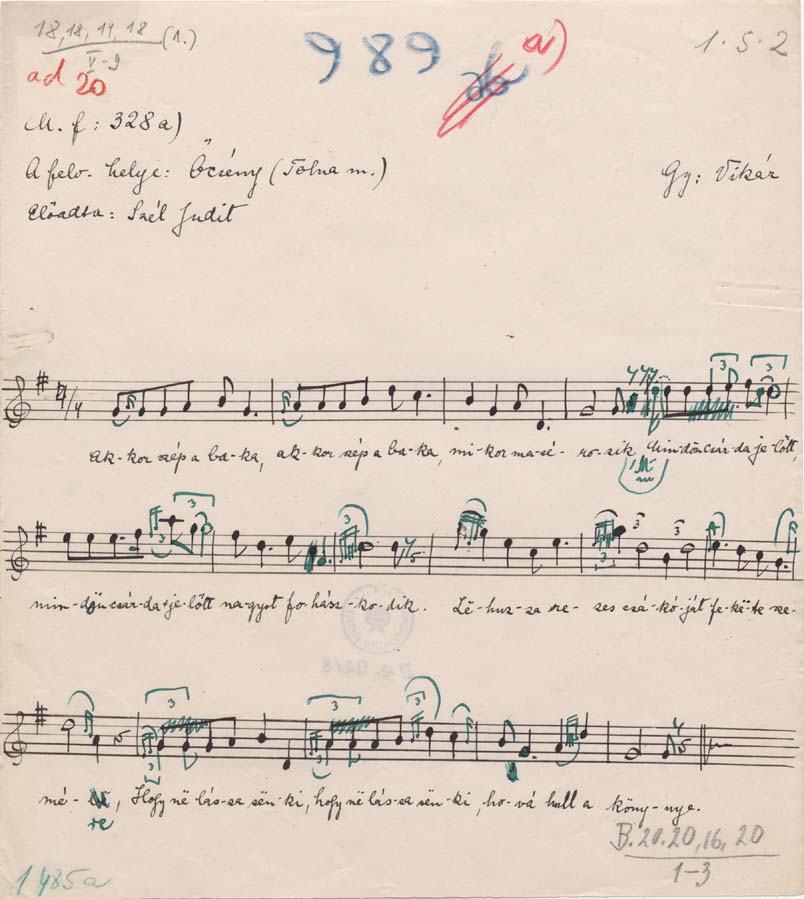 18, 18, 14, 18 (1.)
V-9
989 a)
1·5·2
ad 20
M. f: 328a)
A felv. helye: Őcsény (Tolna m.)
Gy: Vikár
Előadta: Szél Judit
3 3
Ak-kor szép a ba-ka, ak-kor szép a ba-ka, mi-kor ma-sé-ro-zik, Min-dön csár-da je-lőtt,
3 3 3 3
min-dön csár-da je-lőtt na-gyot fo-hász-ko-dik. Lë-huz-za re-zes csá-kó-ját fe-ke-te sze-
3 3
mé-re, Hogy në lás-sa sën-ki, hogy në lás-sa sën-ki, ho-vá hull a köny-nye.
B. 20. 20, 16, 20
1-3
1485a